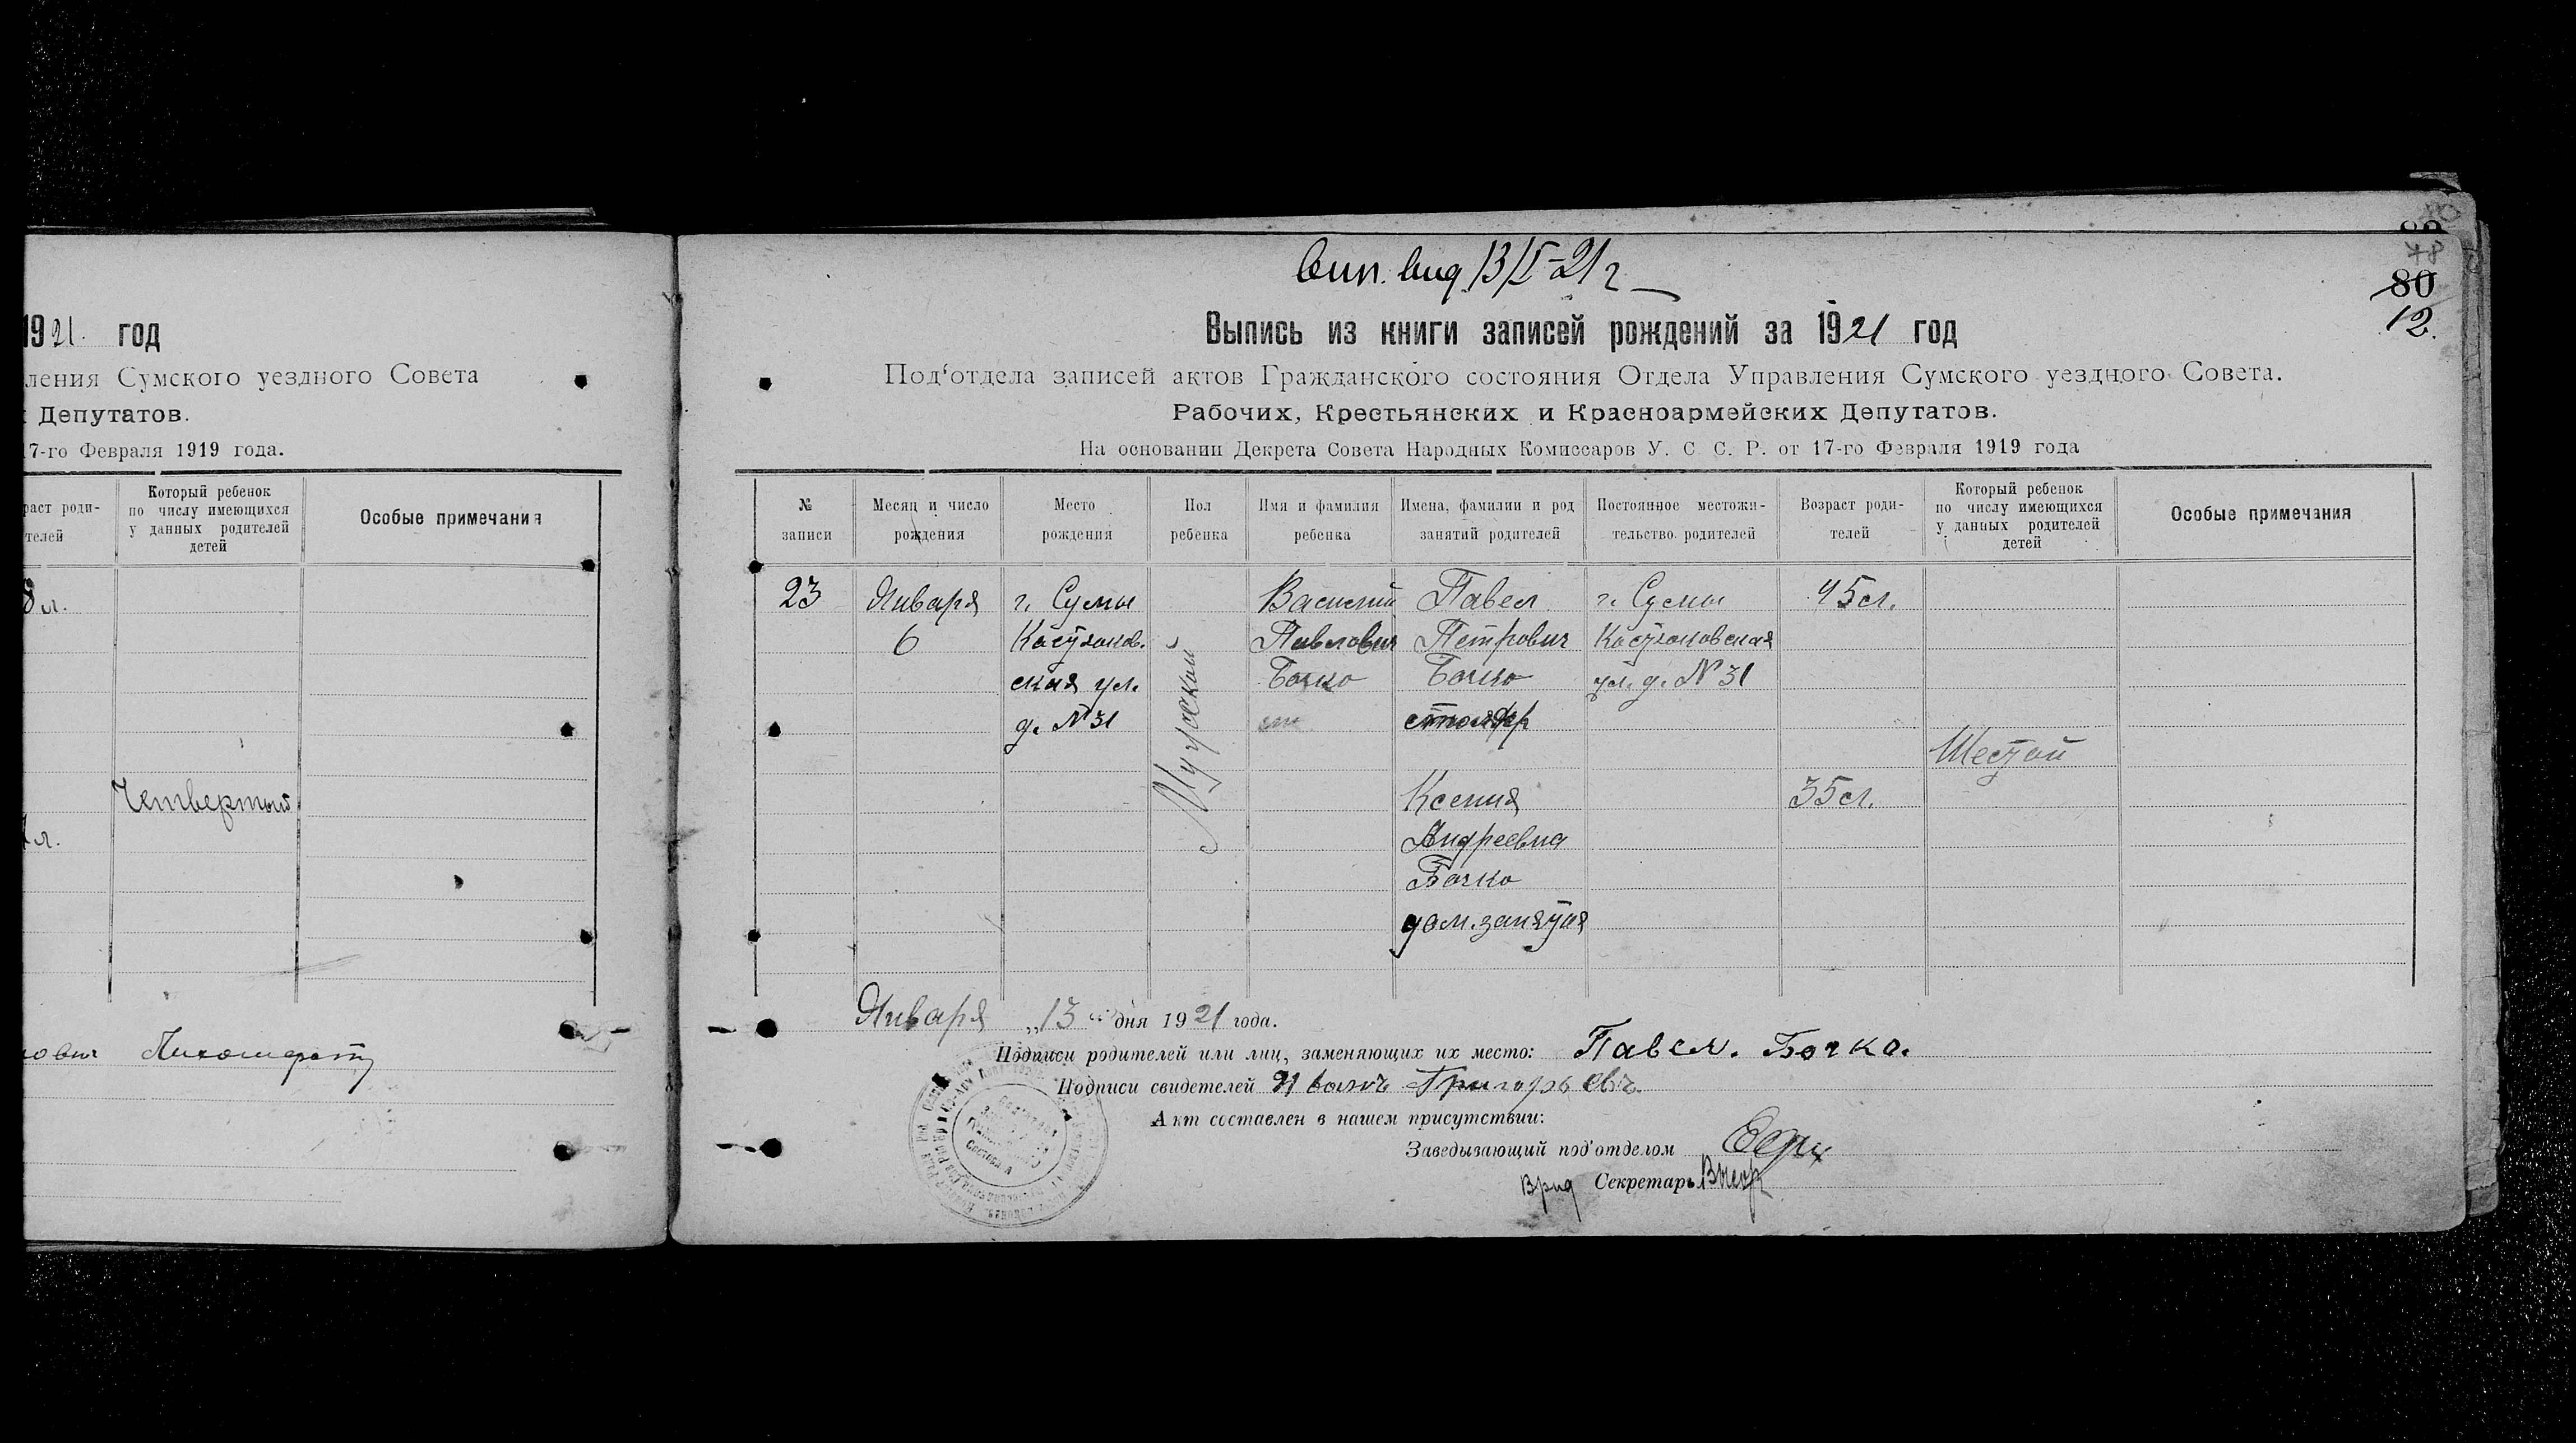 1921. год
ления Сумского уездного Совета
Депутатов.
17-го Февраля 1919 года.
раст роди-
телей
Который ребенок
по числу имеющихся
у данных родителей
детей
Особые примечания
8 л.
Четвертый
л.
ович
80
78
80
12.
вып. выд. 13/I-21 г
Выпись из книги записей рождений за 1921 год
Под'отдела записей актов Гражданского состояния Отдела Управления Сумского уездного Совета.
Рабочих, Крестьянских и Красноармейских Депутатов.
На основании Декрета Совета Народных Комиссаров У. С. С. Р. от 17-го Февраля 1919 года
№
записи
Месяц и число
рождения
Место
рождения
Пол
ребенка
Имя и фамилия
ребенка
Имена, фамилии и род
занятий родителей
Постоянное местожи-
тельство родителей
Возраст роди-
телей
Который ребенок
по числу имеющихся
у данных родителей
детей
Особые примечания
23
Января
6
г. Сумы
ская ул.
д. № 31
Мужской
Василий
Павлович
Бочко
Павел
Петрович
Бочко
столяр
Ксения
Андреевна
Бочко
дом. занятия
г. Сумы
ул. д. № 31
45 л.
35 л.
Шестой
Января „13 “ дня 1921 года.
Подписи родителей или лиц, заменяющих их место: Павел. Бочко.
Подписи свидетелей Иванъ Григорьевъ
Акт составлен в нашем присутствии:
Заведывающий под'отделом
Врид Секретарь